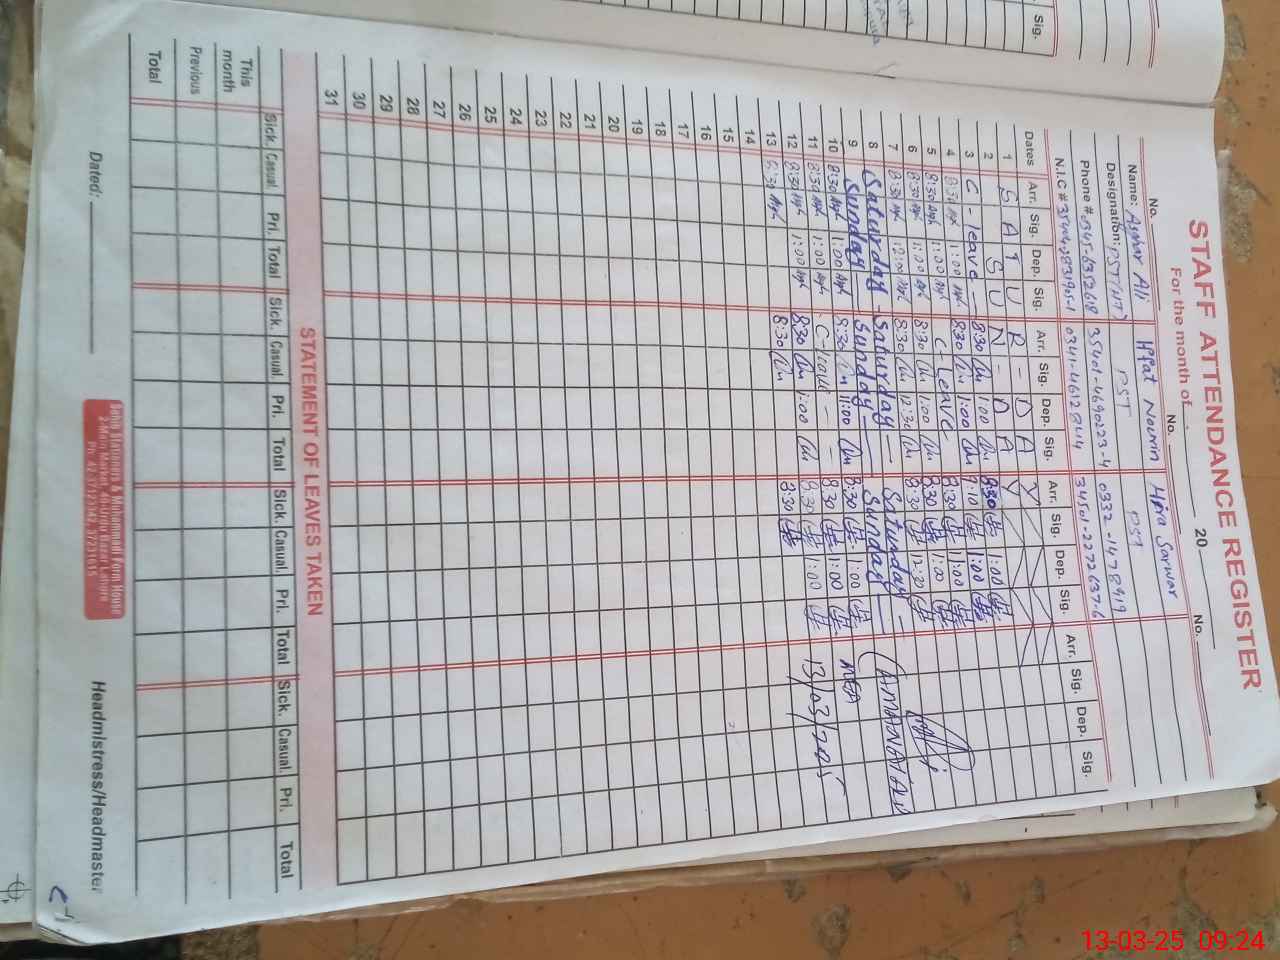 STAFF ATTENDANCE REGISTER
For the month of 20
No. No. No.
Name: Asghar Ali Iffat Nourin Hira Sarwar
Designation: PST(HT) PST PST
Phone # 0345-6352618 35401-4690223-4 0332-1478919
N.I.C # 0341-4612844 34501-2272637-6
Dates Arr. Sig. Dep. Sig. Arr. Sig. Dep. Sig. Arr. Sig. Dep. Sig. Arr. Sig. Dep. Sig.
1 S A T U R - D A Y
2 S U N - D A Y
3 C - leave - 8:30 1:00 8:30 1:00
4 8:30 1:00 8:30 1:00 9:10 1:00
5 8:30 1:00 C - Leave - 8:30 1:00
6 8:30 1:00 8:30 1:00 8:30 1:00
7 8:30 12:00 8:30 12:30 8:30 12:30
8 Saturday Saturday Saturday
9 Sunday Sunday Sunday
10 8:30 1:00 8:30 11:00 8:30 1:00
11 8:30 1:00 C-leave - 8:30 1:00
12 8:30 1:00 8:30 1:00 8:30 1:00
13 8:30 8:30 8:30
14
15
16
17
18
19
20
21
22
23
24
25
26
27
28
29
30
31
(AMANAT ALI)
MEA
13/03/2025
STATEMENT OF LEAVES TAKEN
Sick. Casual. Pri. Total Sick. Casual. Pri. Total Sick. Casual. Pri. Total Sick. Casual. Pri. Total
This month
Previous
Total
Dated:
2-Main Market, 40-Urdu Bazar Lahore
Headmistress/Headmaster
Sig.
Sig.
13-03-25 09:24